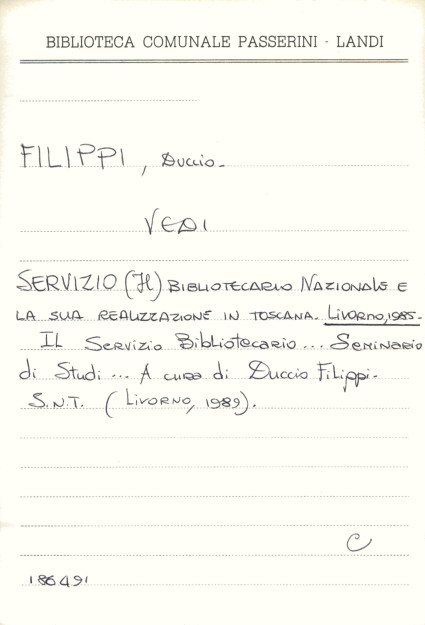 BIBLIOTECA COMUNALE PASSERINI - LANDI
FILIPPI, Duccio-
VEDI
SERVIZIO (Il) BIBLIOTECARIO NAZIONALE E
LA SUA REALIZZAZIONE IN TOSCANA. Livorno, 1985.-
IL Servizio Bibliotecario... Seminario
di Studi... A cura di Duccio Filippi-
S.N.T. (Livorno, 1989).
C
186491